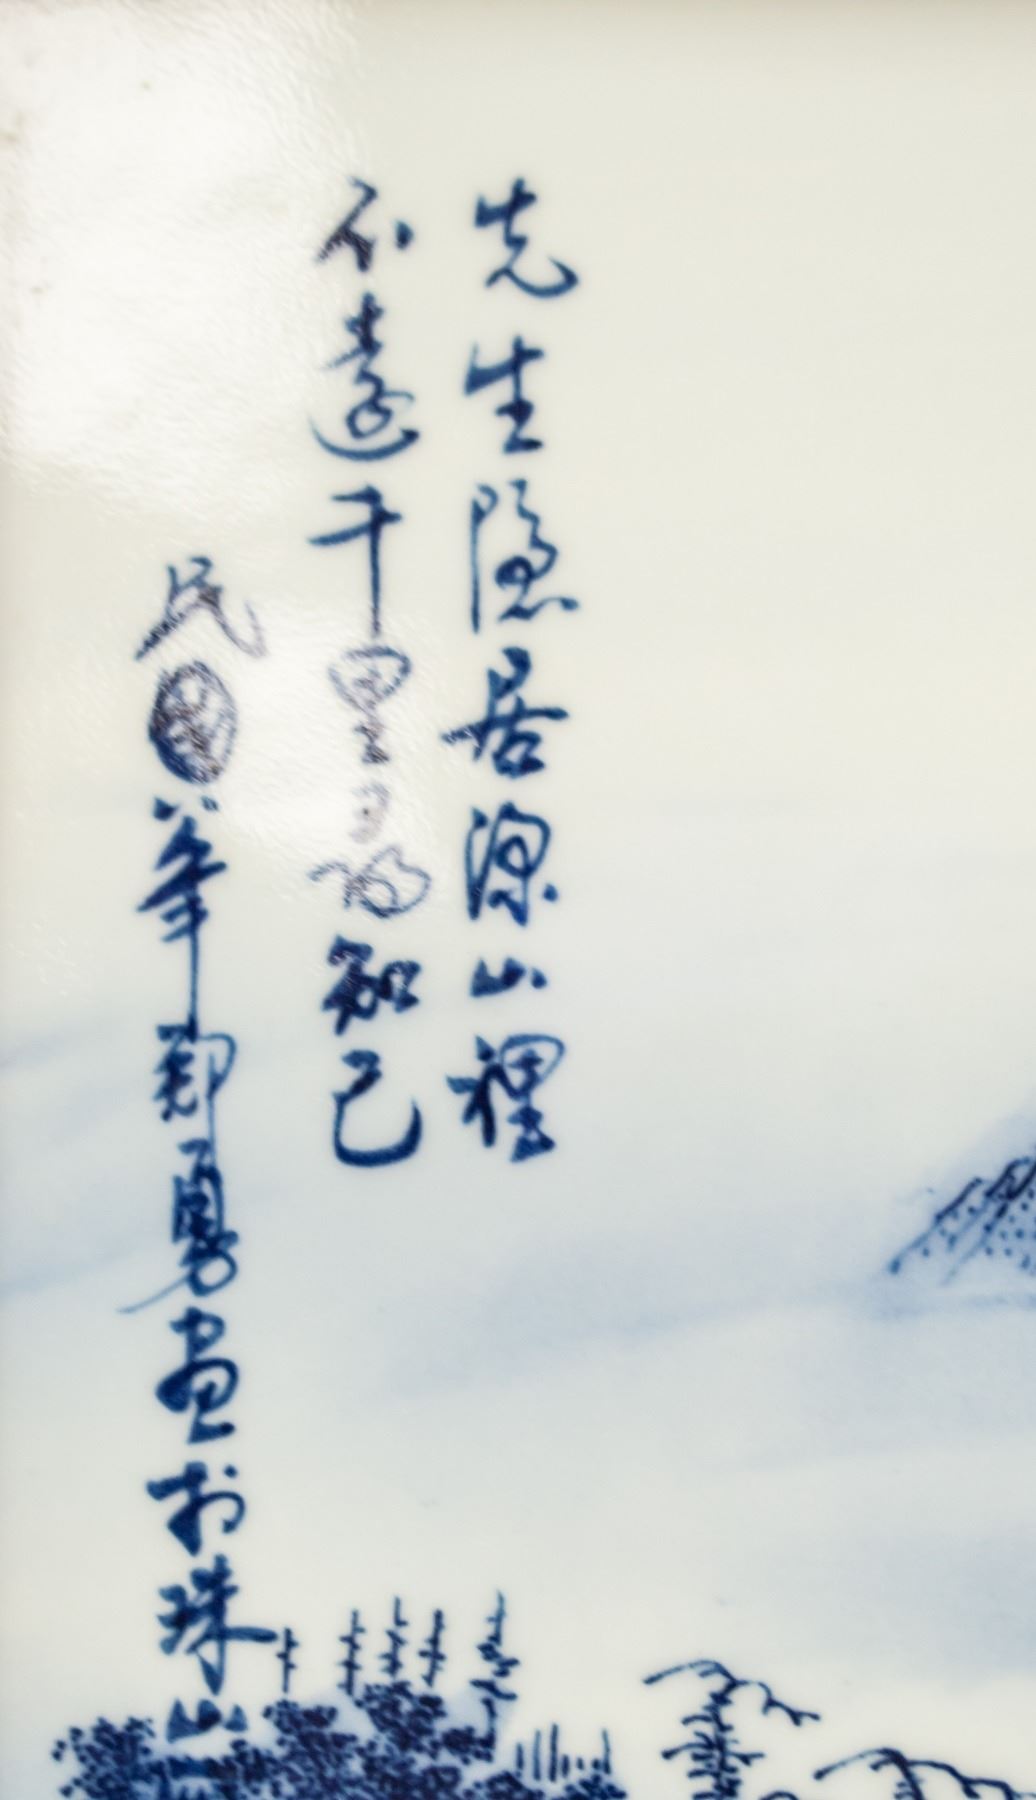 先生隱居深山裡
不遠千里了為知己
民國八年鄭勇畫於珠山